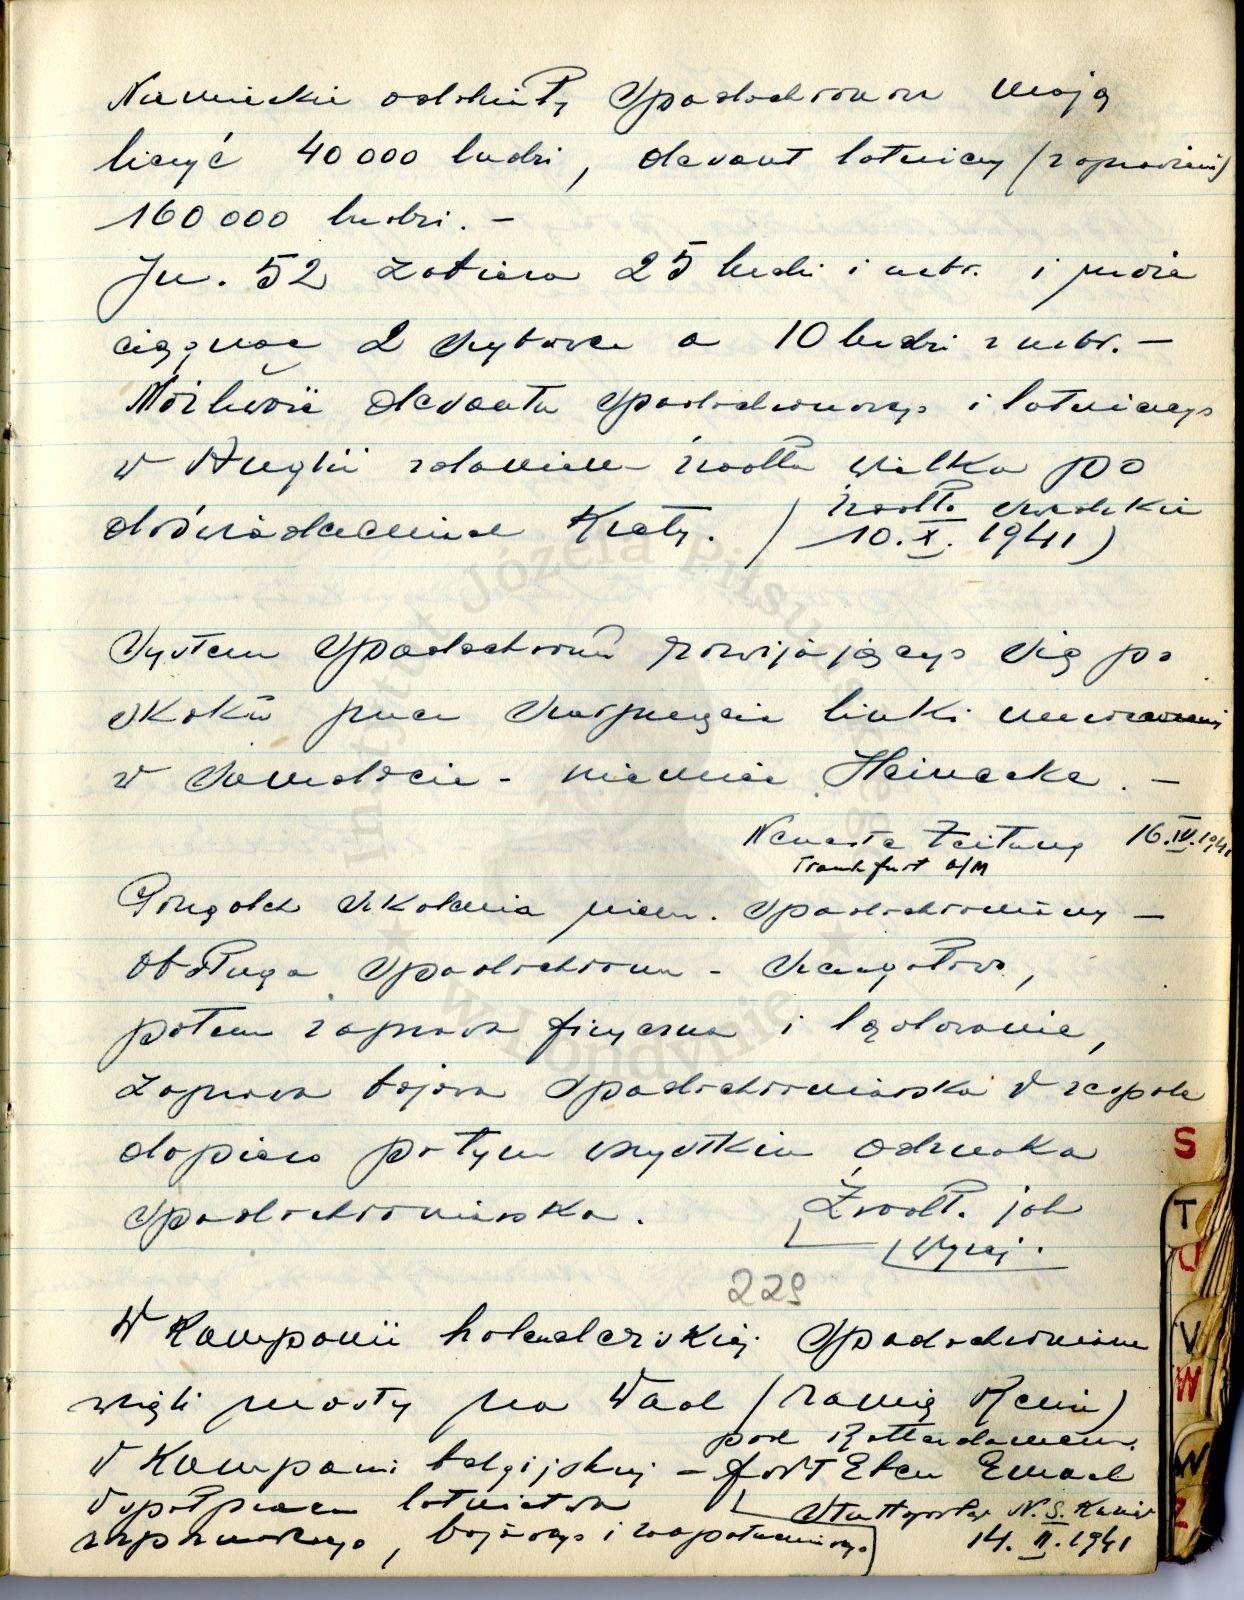 Niemieckie oddziały spadochronowe mają
liczyć 40 000 ludzi, desant lotniczy (zaprawieni)
160 000 ludzi. –
Ju. 52 zabiera 25 ludzi i uzbr. i może
ciągnąć 2 szybowce a 10 ludzi z uzbr. –
Możliwość desantu spadochronowego i lotniczego
w Anglii zdaniem źródła wielka po
doświadczeniach Krety. (źródło szwedzkie
10. X. 1941)
System spadochronu rozwijającego się po
skoku przez szarpnięcie linki umocowanej
w samolocie – niemiec Heinecke. –
Neueste Zeitung 16. IV. 1941
Frankfurt a/M
Porządek szkolenia niem. spadochroniarzy –
obsługa spadochronu – szczegółowa,
potem zaprawa fizyczna i lądowanie,
zaprawa bojowa spadochroniarska w zespole
dopiero po tym wszystkim odznaka
spadochroniarska. Źródł. jak
wyżej.
229
W Kampanii holenderskiej spadochroniarze
wzięli mosty na Waal (ramię Renu)
pod Rotterdamem.
W Kampanii belgijskiej – fort Eben Emael
współpraca lotnictwa Stuttgarter N.S. Kurier
rozpoznawczego, bojowego i zaopatrzeniowego 14. II. 1941
Instytut Józefa Piłsudskiego
w Londynie
S
T
U
V
W
W
Z